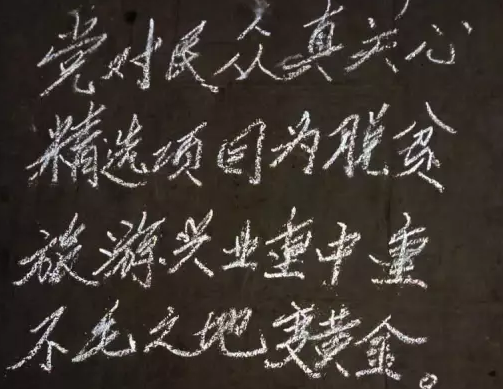 党对民众真关心
精选项目为脱贫
旅游兴业重中重
不毛之地变黄金。